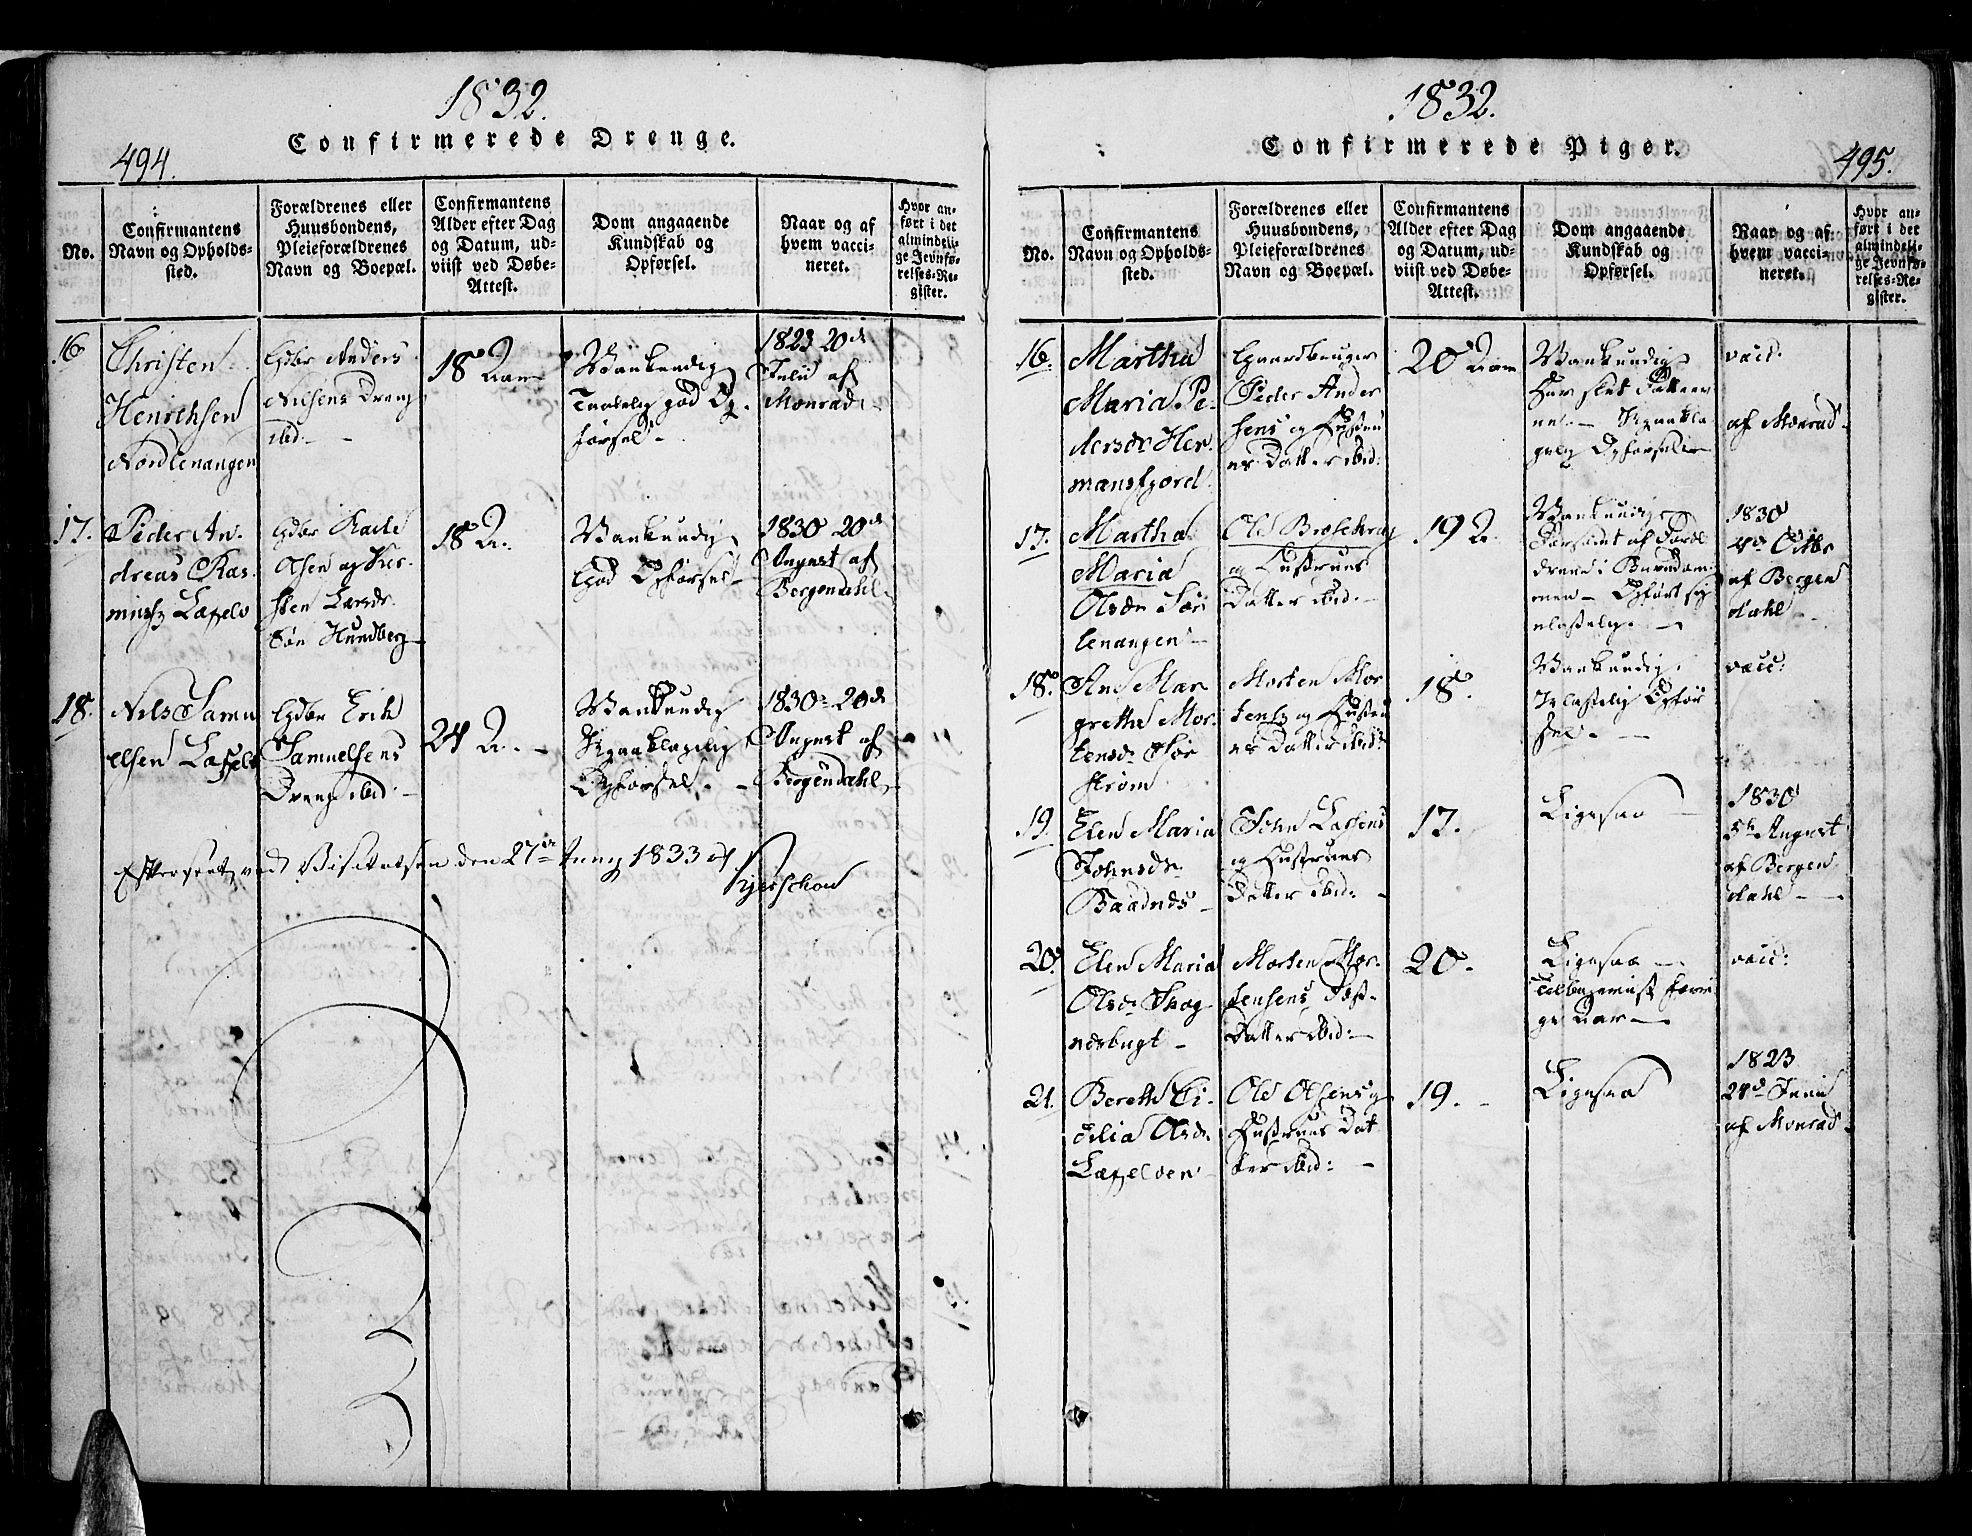 1832.
Confirmerede Drenge.
494.
No.
Confirmantens
Navn og Opholds-
sted.
Forældrenes eller
Huusbondens,
Pleieforældrenes
Navn og Boepæl.
Confirmantens
Alder efter Dag
og Datum, ud-
viist ved Døbe-
Attest.
Dom angaaende
Kundskab og
Opførsel.
Naar og af
hvem vacci-
neret.
Hvor an-
ført i det
almindeli-
ge Jevnfø-
relses-Re-
gister.
16
Christen
Henrichsen
Nordlenangen
Gdbr Anders
Nilsens Dreng
ibid:
18 Aar
Vankundig
god Op-
førsel
1823 20de
Julii af
Monrad
17.
Peder An-
dreas Ras-
Gdbr
Olsen og Kir-
sten Larsdr
Søn Hundberg
18 A.
Vankundig
God Opførsel
1830 20de
August af
Bergendahl
18.
Nils Samu
elsen
Gdbr Erik
Samuelsens
Dreng ibid:
24 A.
Vankundig
Upaaklagelig
Opførsel.
1830 20de
August af
Bergendahl
Efterseet ved Visitatsen den 27de Juny 1833 af
Kjerschow
1832.
Confirmerede Piger.
495.
No.
Confirmantens
Navn og Opholds-
sted.
Forældrenes eller
Huusbondens,
Pleieforældrenes
Navn og Boepæl.
Confirmantens
Alder efter Dag
og Datum, ud-
viist ved Døbe-
Attest.
Dom angaaende
Kundskab og
Opførsel.
Naar og af
hvem vacci-
neret.
Hvor an-
ført i det
almindeli-
ge Jevnfø-
relses-Re-
gister.
16.
Martha
Maria Pe-
dersdr Her-
mansfjord
Gaardbruger
Peder Ander
sens og Hustru
es Datter ibid:
20 Aar
Vankundig
Upaakla-
gelig Opførsel
vacc:
af Monrad
17.
Martha
Maria
Olsdr Sør
lenangen
Ole
og Hustrues
Datter ibid:
19 A.
Vankundig
Forsømt af Foræl
drene i Barndom
men - Opført sig
ulastelig.
1830
4de Octbr
af Bergen
dahl
18.
Ane Mar
gretha Mor-
tensdr Sør
strøm
Morten Mor
tens og Hustru
es Datter ibid:
18.
Vankundig
Ulastelig Opfør
sel.
vacc:
19.
Elen Maria
Johnsdr
Baadnes
John Larsens
og Hustrues
Datter ibid:
17.
Ligesaa
1830
5te August
af Bergen
dahl
20.
Elen Maria
Olsdr Skog
nesbugt
Morten Mor-
tensens Post-
Datter ibid:
20.
Ligesaa
Tilbageviist forri
ge Aar
vacc:
21.
Bereth Ci-
cilia Olsdr
Ole Olsens og
Hustrues Dat
ter ibid:
19.
Ligesaa
1823
24de Junii
af Monrad